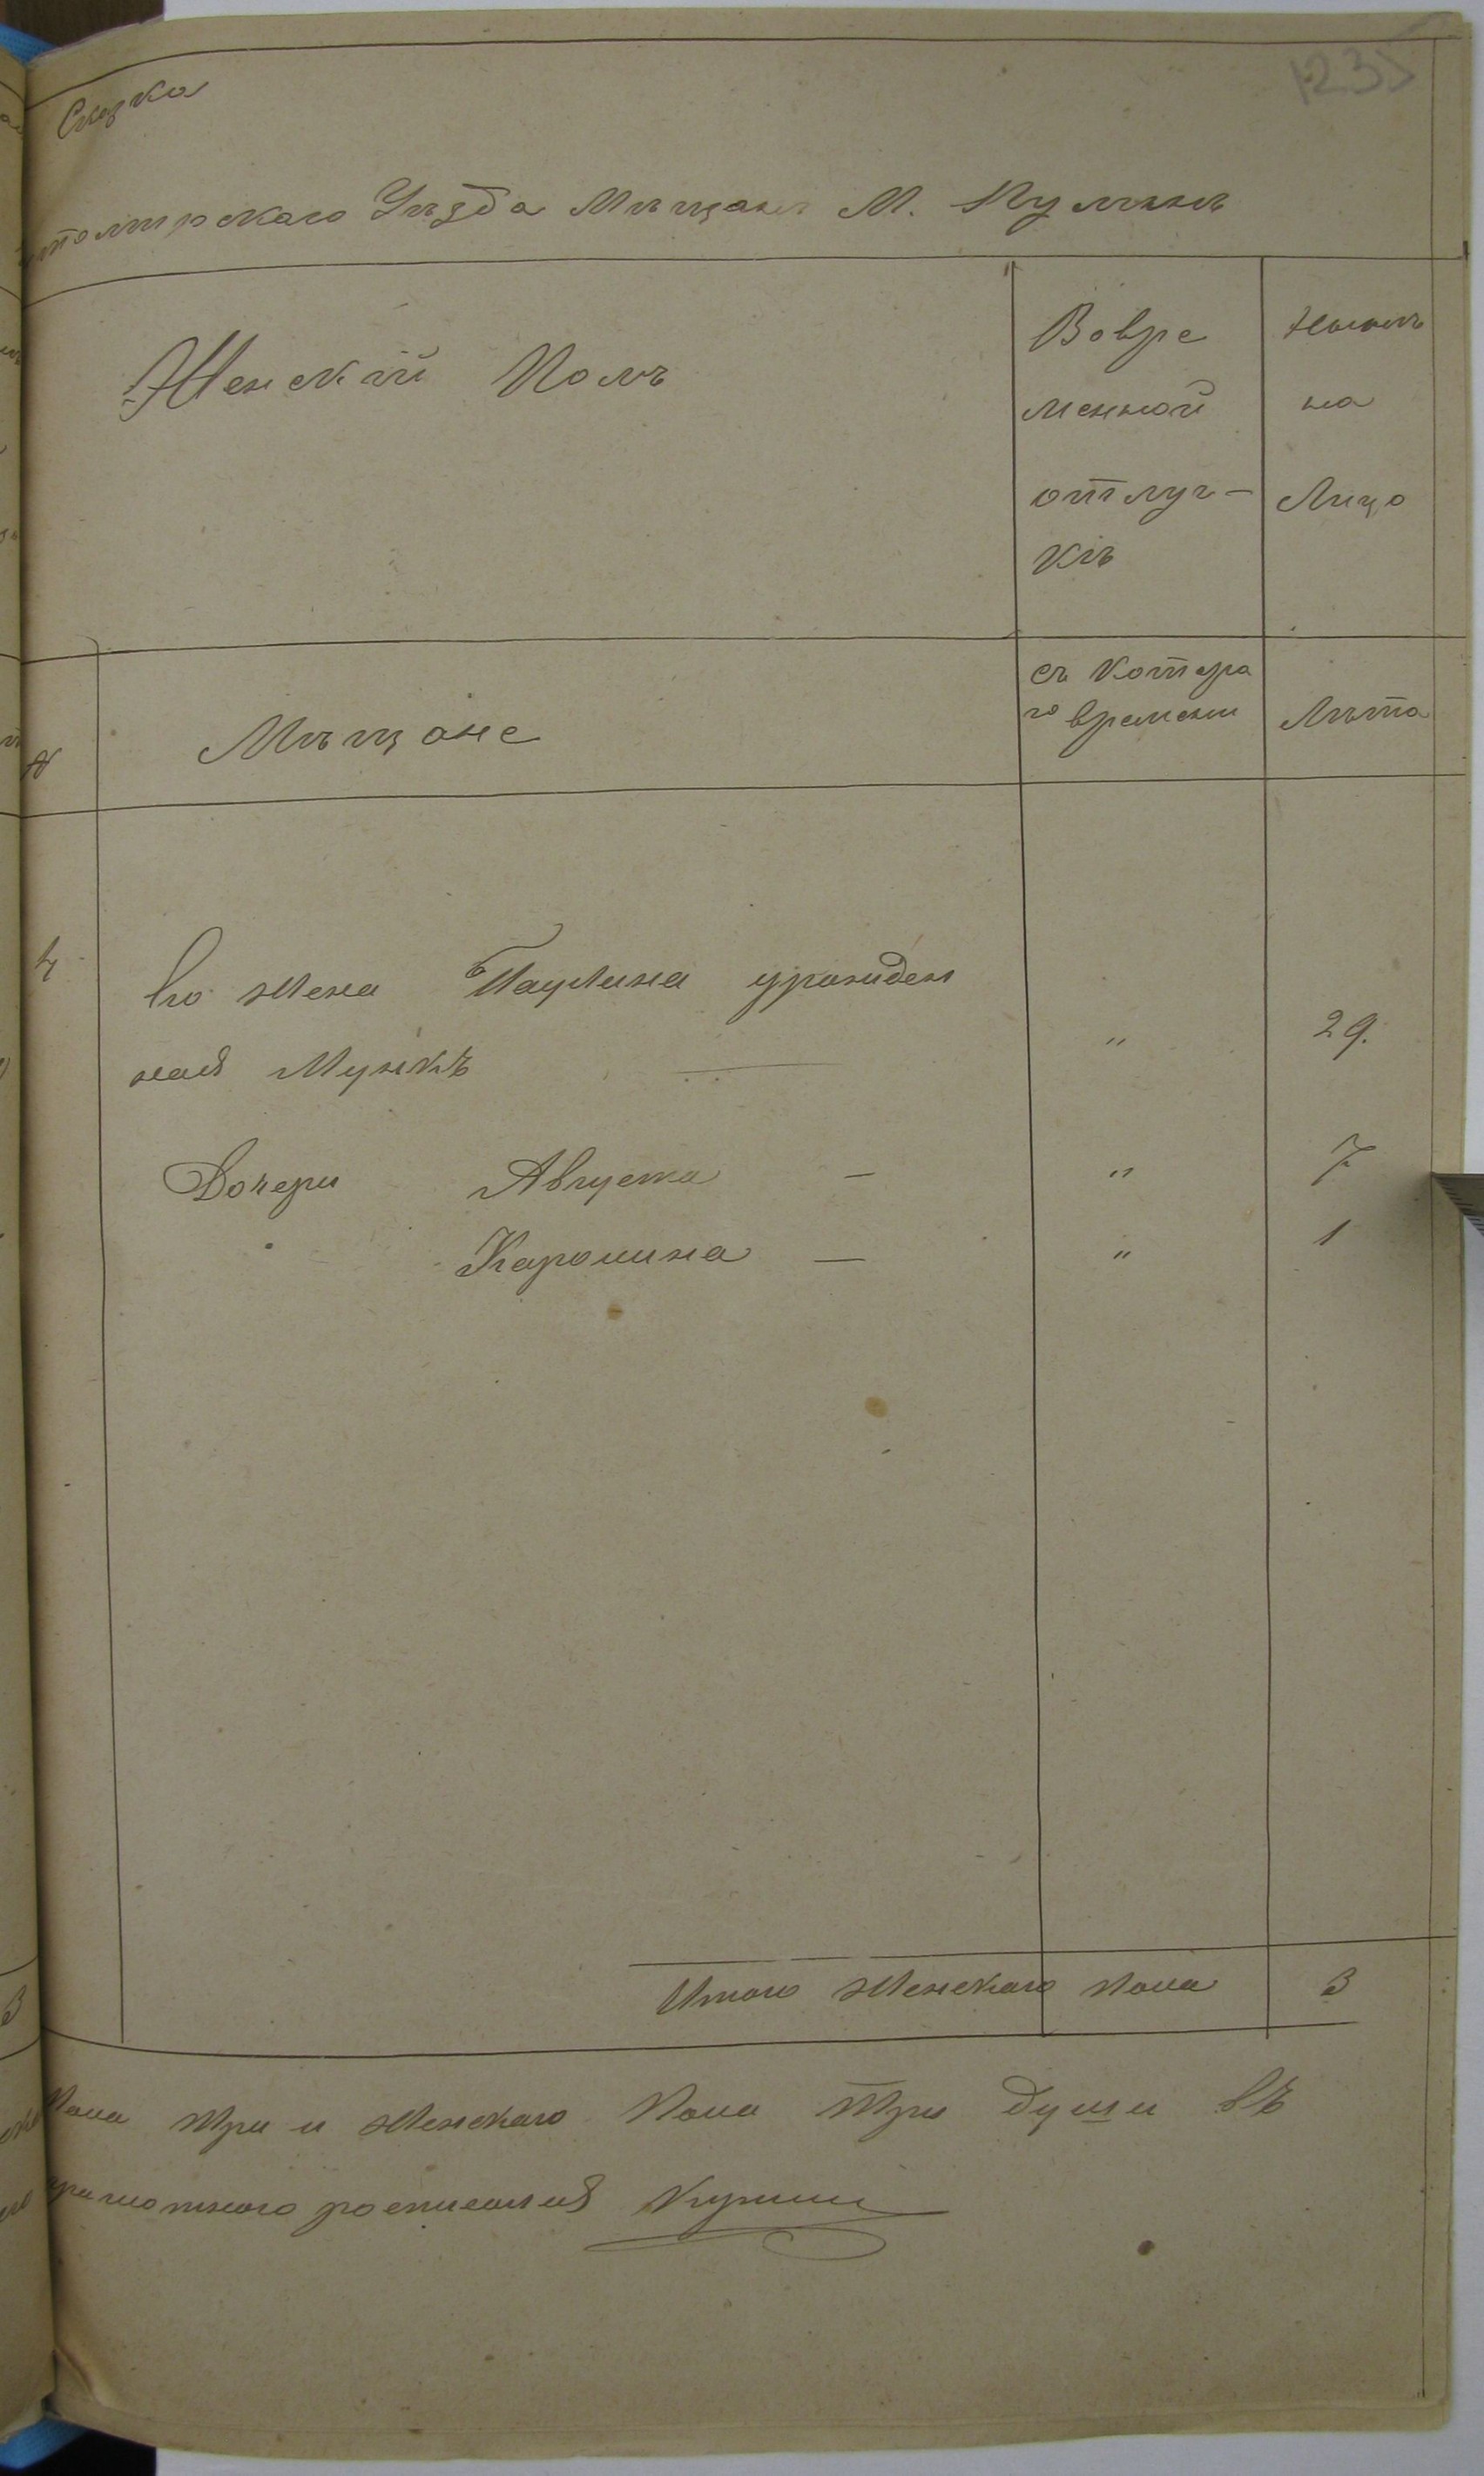 1235
Сказка
томирскаго Уѣзда Мѣщанъ М. Пулинъ
Женскій Полъ
Вовре
менной
отлуч-
кѣ
Нынѣ
на
Лицо
№
Мѣщане
съ котора
го времени
Лѣта
4
Его жена Паулина урожден
ная Мункъ
"
29.
Дочери Августа — " 7
Каролина — " 1
Итого женскаго пола 3
Пола три и женскаго Пола три души въ